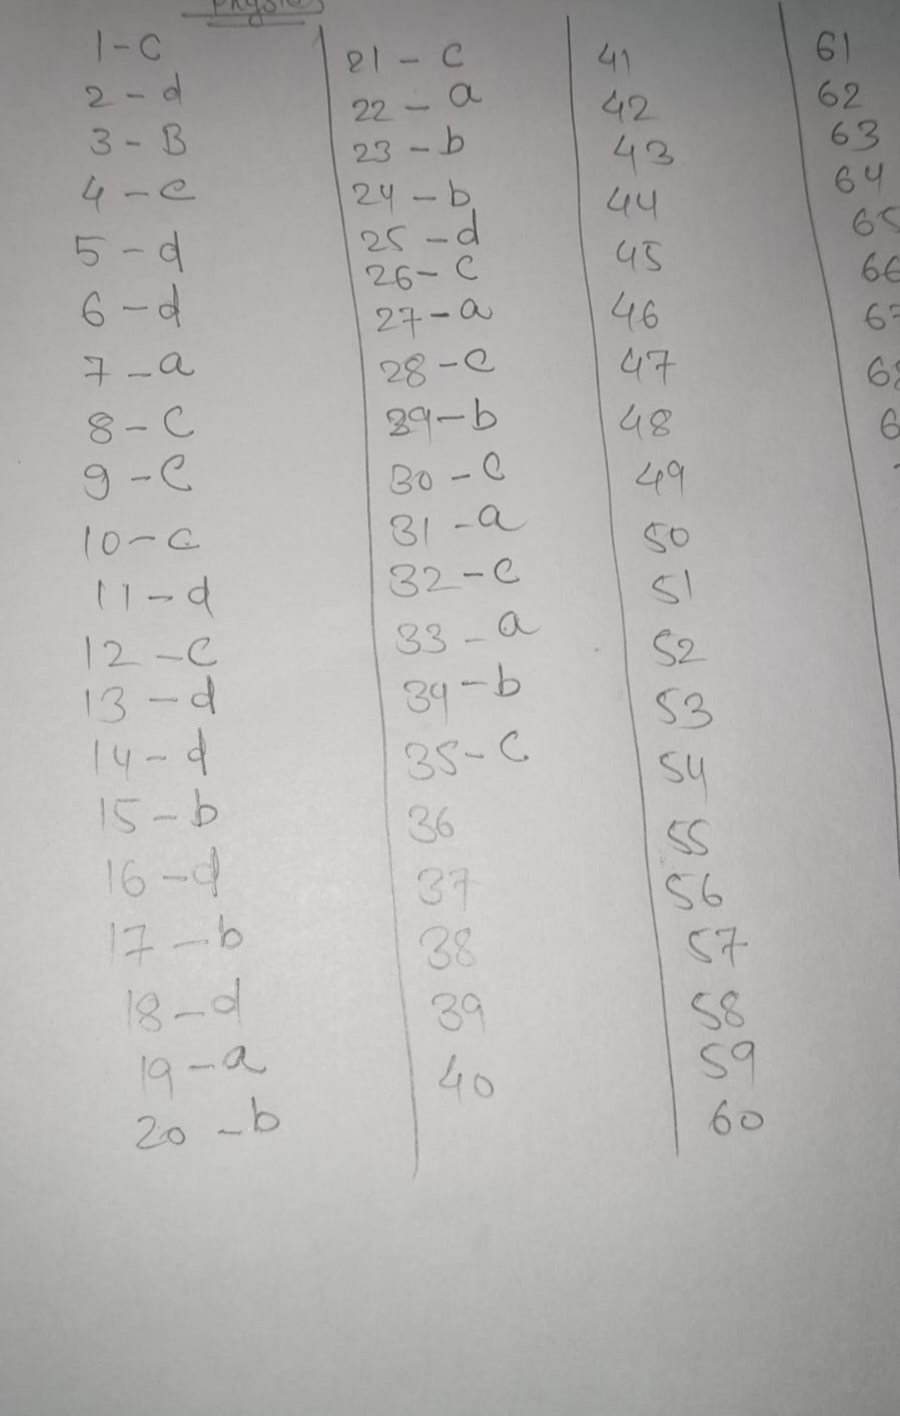 Physics
1-c
2-d
3-B
4-c
5-d
6-d
7-a
8-C
9-C
10-c
11-d
12-c
13-d
14-d
15-b
16-d
17-b
18-d
19-a
20-b
21-c
22-a
23-b
24-b
25-d
26-c
27-a
28-c
29-b
30-c
31-a
32-c
33-a
34-b
35-c
36
37
38
39
40
41
42
43
44
45
46
47
48
49
50
51
52
53
54
55
56
57
58
59
60
61
62
63
64
65
66